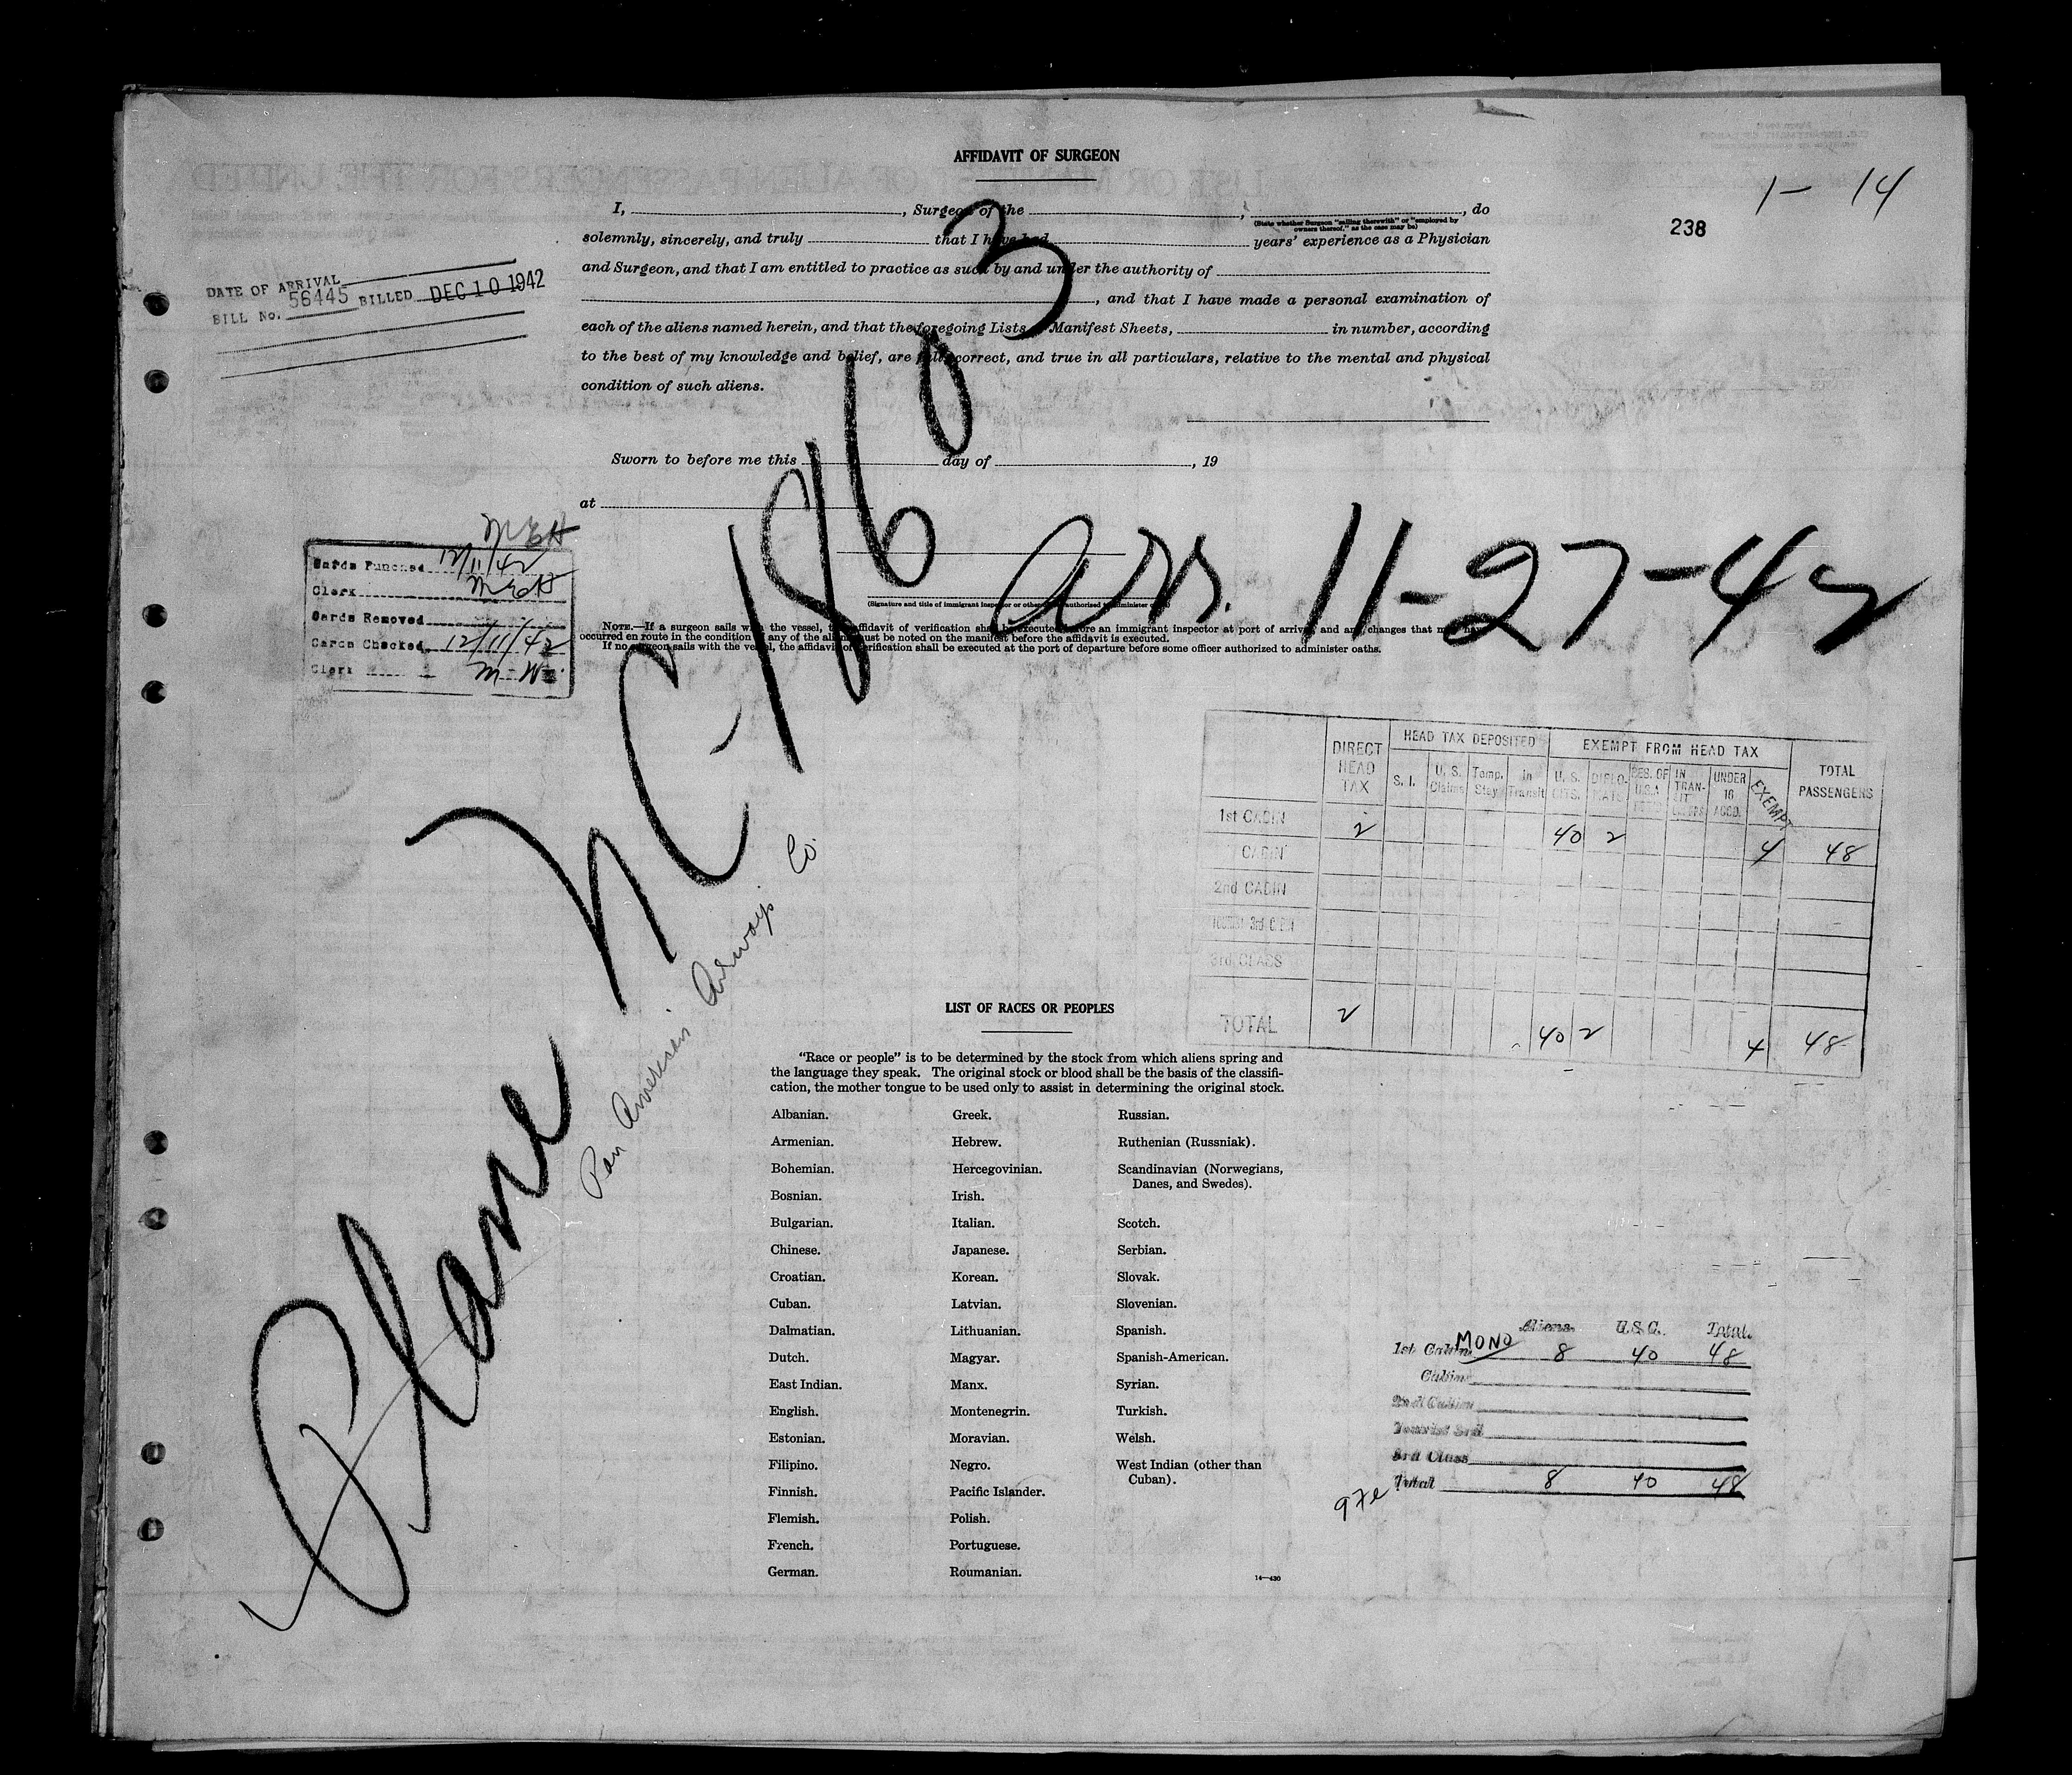 AFFIDAVIT OF SURGEON
1- 14
238
I, , Surgeon of the , , do
(State whether Surgeon "sailing therewith" or "employed by owners thereof," as the case may be)
solemnly, sincerely, and truly that I have had years' experience as a Physician
and Surgeon, and that I am entitled to practice as such by and under the authority of
, and that I have made a personal examination of
each of the aliens named herein, and that the foregoing Lists or Manifest Sheets, in number, according
to the best of my knowledge and belief, are full, correct, and true in all particulars, relative to the mental and physical
condition of such aliens.
Sworn to before me this day of , 19
at
DATE OF ARRIVAL
BILL No. 56445 BILLED DEC 10 1942
MEH
Cards Punched 12/11/42
Clerk MEH
Cards Removed
Cards Checked 12/11/42
Clerk
Plane NC-18603
Pan American Airways Co.
Arr. 11-27-42
(Signature and title of immigrant inspector or other authorized to administer
NOTE.—If a surgeon sails with the vessel, the affidavit of verification shall be executed before an immigrant inspector at port of arrival and any changes that may have
occurred en route in the condition of any of the aliens must be noted on the manifest before the affidavit is executed.
If no surgeon sails with the vessel, the affidavit of verification shall be executed at the port of departure before some officer authorized to administer oaths.
DIRECT HEAD TAX HEAD TAX DEPOSITED EXEMPT FROM HEAD TAX TOTAL PASSENGERS
S. I. U. S. Claims Temp. Stay In Transit U. S. CITS. DIPLO-MATS IN TRAN-SIT UNDER 16 ACCD. EXEMPT
1st CABIN 2 40 2 4 48
CABIN
2nd CABIN
TOURIST 3rd CABIN
3rd CLASS
TOTAL 2 40 2 4 48
LIST OF RACES OR PEOPLES
"Race or people" is to be determined by the stock from which aliens spring and
the language they speak. The original stock or blood shall be the basis of the classifi-
cation, the mother tongue to be used only to assist in determining the original stock.
Albanian.
Armenian.
Bohemian.
Bosnian.
Bulgarian.
Chinese.
Croatian.
Cuban.
Dalmatian.
Dutch.
East Indian.
English.
Estonian.
Filipino.
Finnish.
Flemish.
French.
German.
Greek.
Hebrew.
Hercegovinian.
Irish.
Italian.
Japanese.
Korean.
Latvian.
Lithuanian.
Magyar.
Manx.
Montenegrin.
Moravian.
Negro.
Pacific Islander.
Polish.
Portuguese.
Roumanian.
Russian.
Ruthenian (Russniak).
Scandinavian (Norwegians,
Danes, and Swedes).
Scotch.
Serbian.
Slovak.
Slovenian.
Spanish.
Spanish-American.
Syrian.
Turkish.
Welsh.
West Indian (other than
Cuban).
14—430
Aliens U.S.C. Total
1st Cabin MONO 8 40 48
Cabin
2nd Cabin
Tourist 3rd
3rd Class
Total 8 40 48